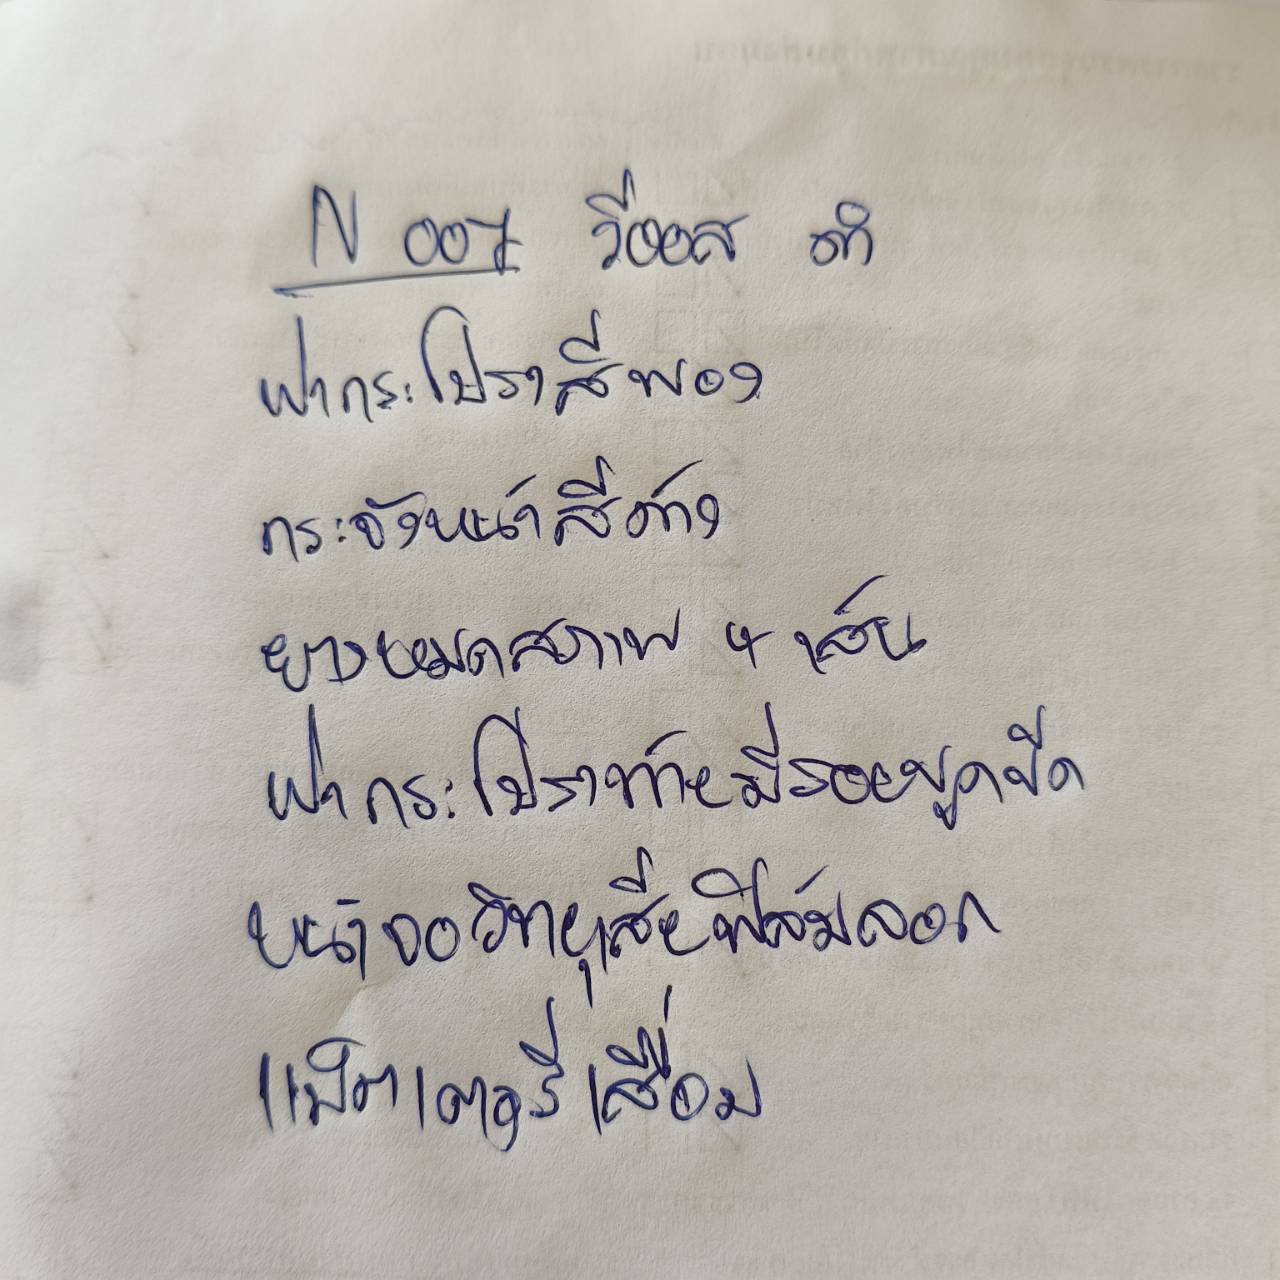 N 007 วีออส ดำ
ฝากระโปรงสีพอง
กระจังหน้าสีด่าง
ยางหมดสภาพ 4 เส้น
ฝากระโปรงท้ายมีรอยขูดขีด
หน้าจอวิทยุเสียฟิล์มลอก
แบ็ตเตอรี่เสื่อม